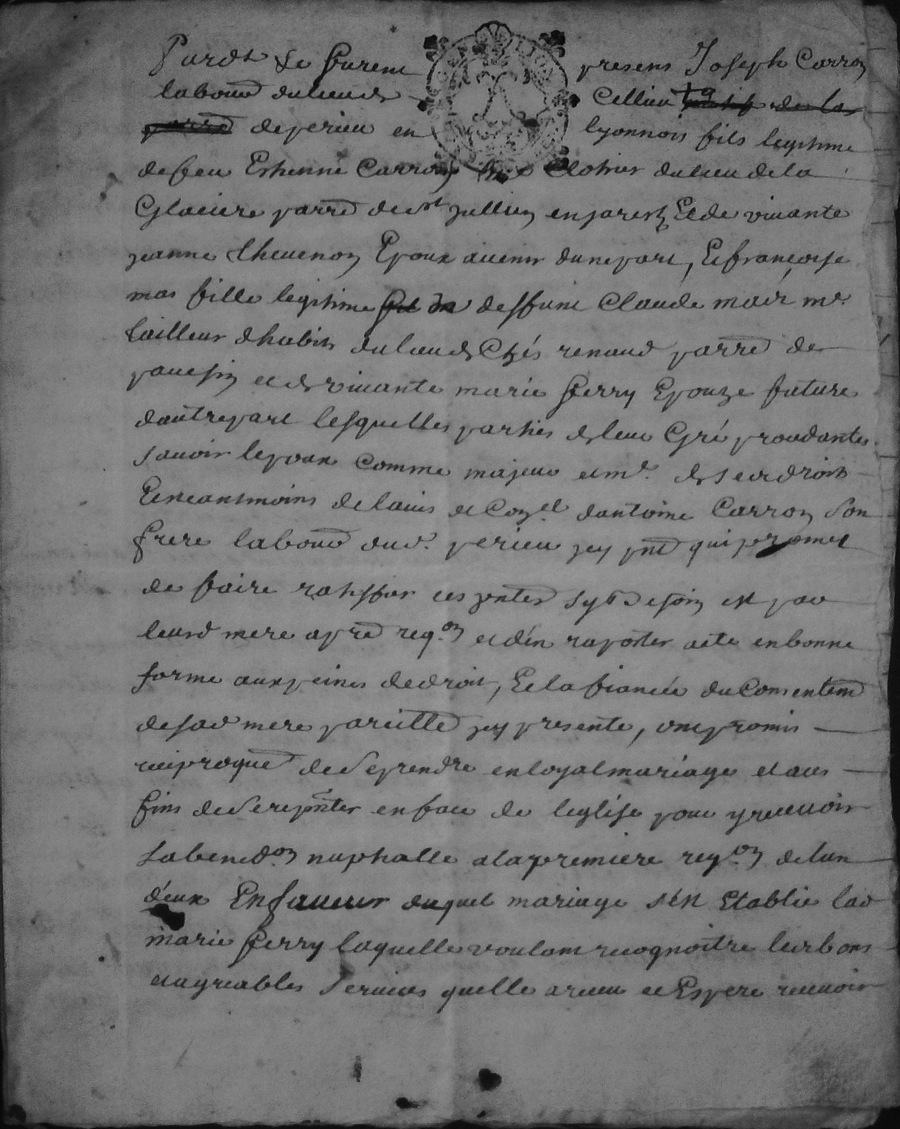 Pardt le furent presens Joseph Carron
laboure du lieu de Cellieu
de perieu en lyonnois fils legitime
de feu Estienne Carron Clotrier du lieu de la
Glaciere parre de st jullien en jarest Et de vivante
jeanne thevenon Epoux avenir dune part, Et françoise
mas fille legitime de deffunt Claude mas mr
tailleur dhabits du lieu de Chés renaud parre de
pavesin et de vivante marie ferry Epouze future
dautre part lesquelles parties de leur Gré proceddantes
savoir lepoux comme majeur et me. de ses droits
Et neantmoins de lavis et Conel dantoine Carron son
frere laboure dud. perieu jcy pnt qui promet
de faire ratiffier ces pntes sy besoin est par
leurd mere a pre reqon et den raporter acte en bonne
forme aux peines de droit, Et la fiancée du Consentem
de sad mere pareillem jcy presente, ont promis
reciproquet de se prendre en loyal mariage et aux
fins de se repnter en face de leglise pour y recevoir
la benedon nuptialle a la premiere reqon de lun
deux En faveur duquel mariage sest Etablie lad
marie ferry laquelle voulant recognoitre les bons
et agreables services quelle a receu et Espere recevoir